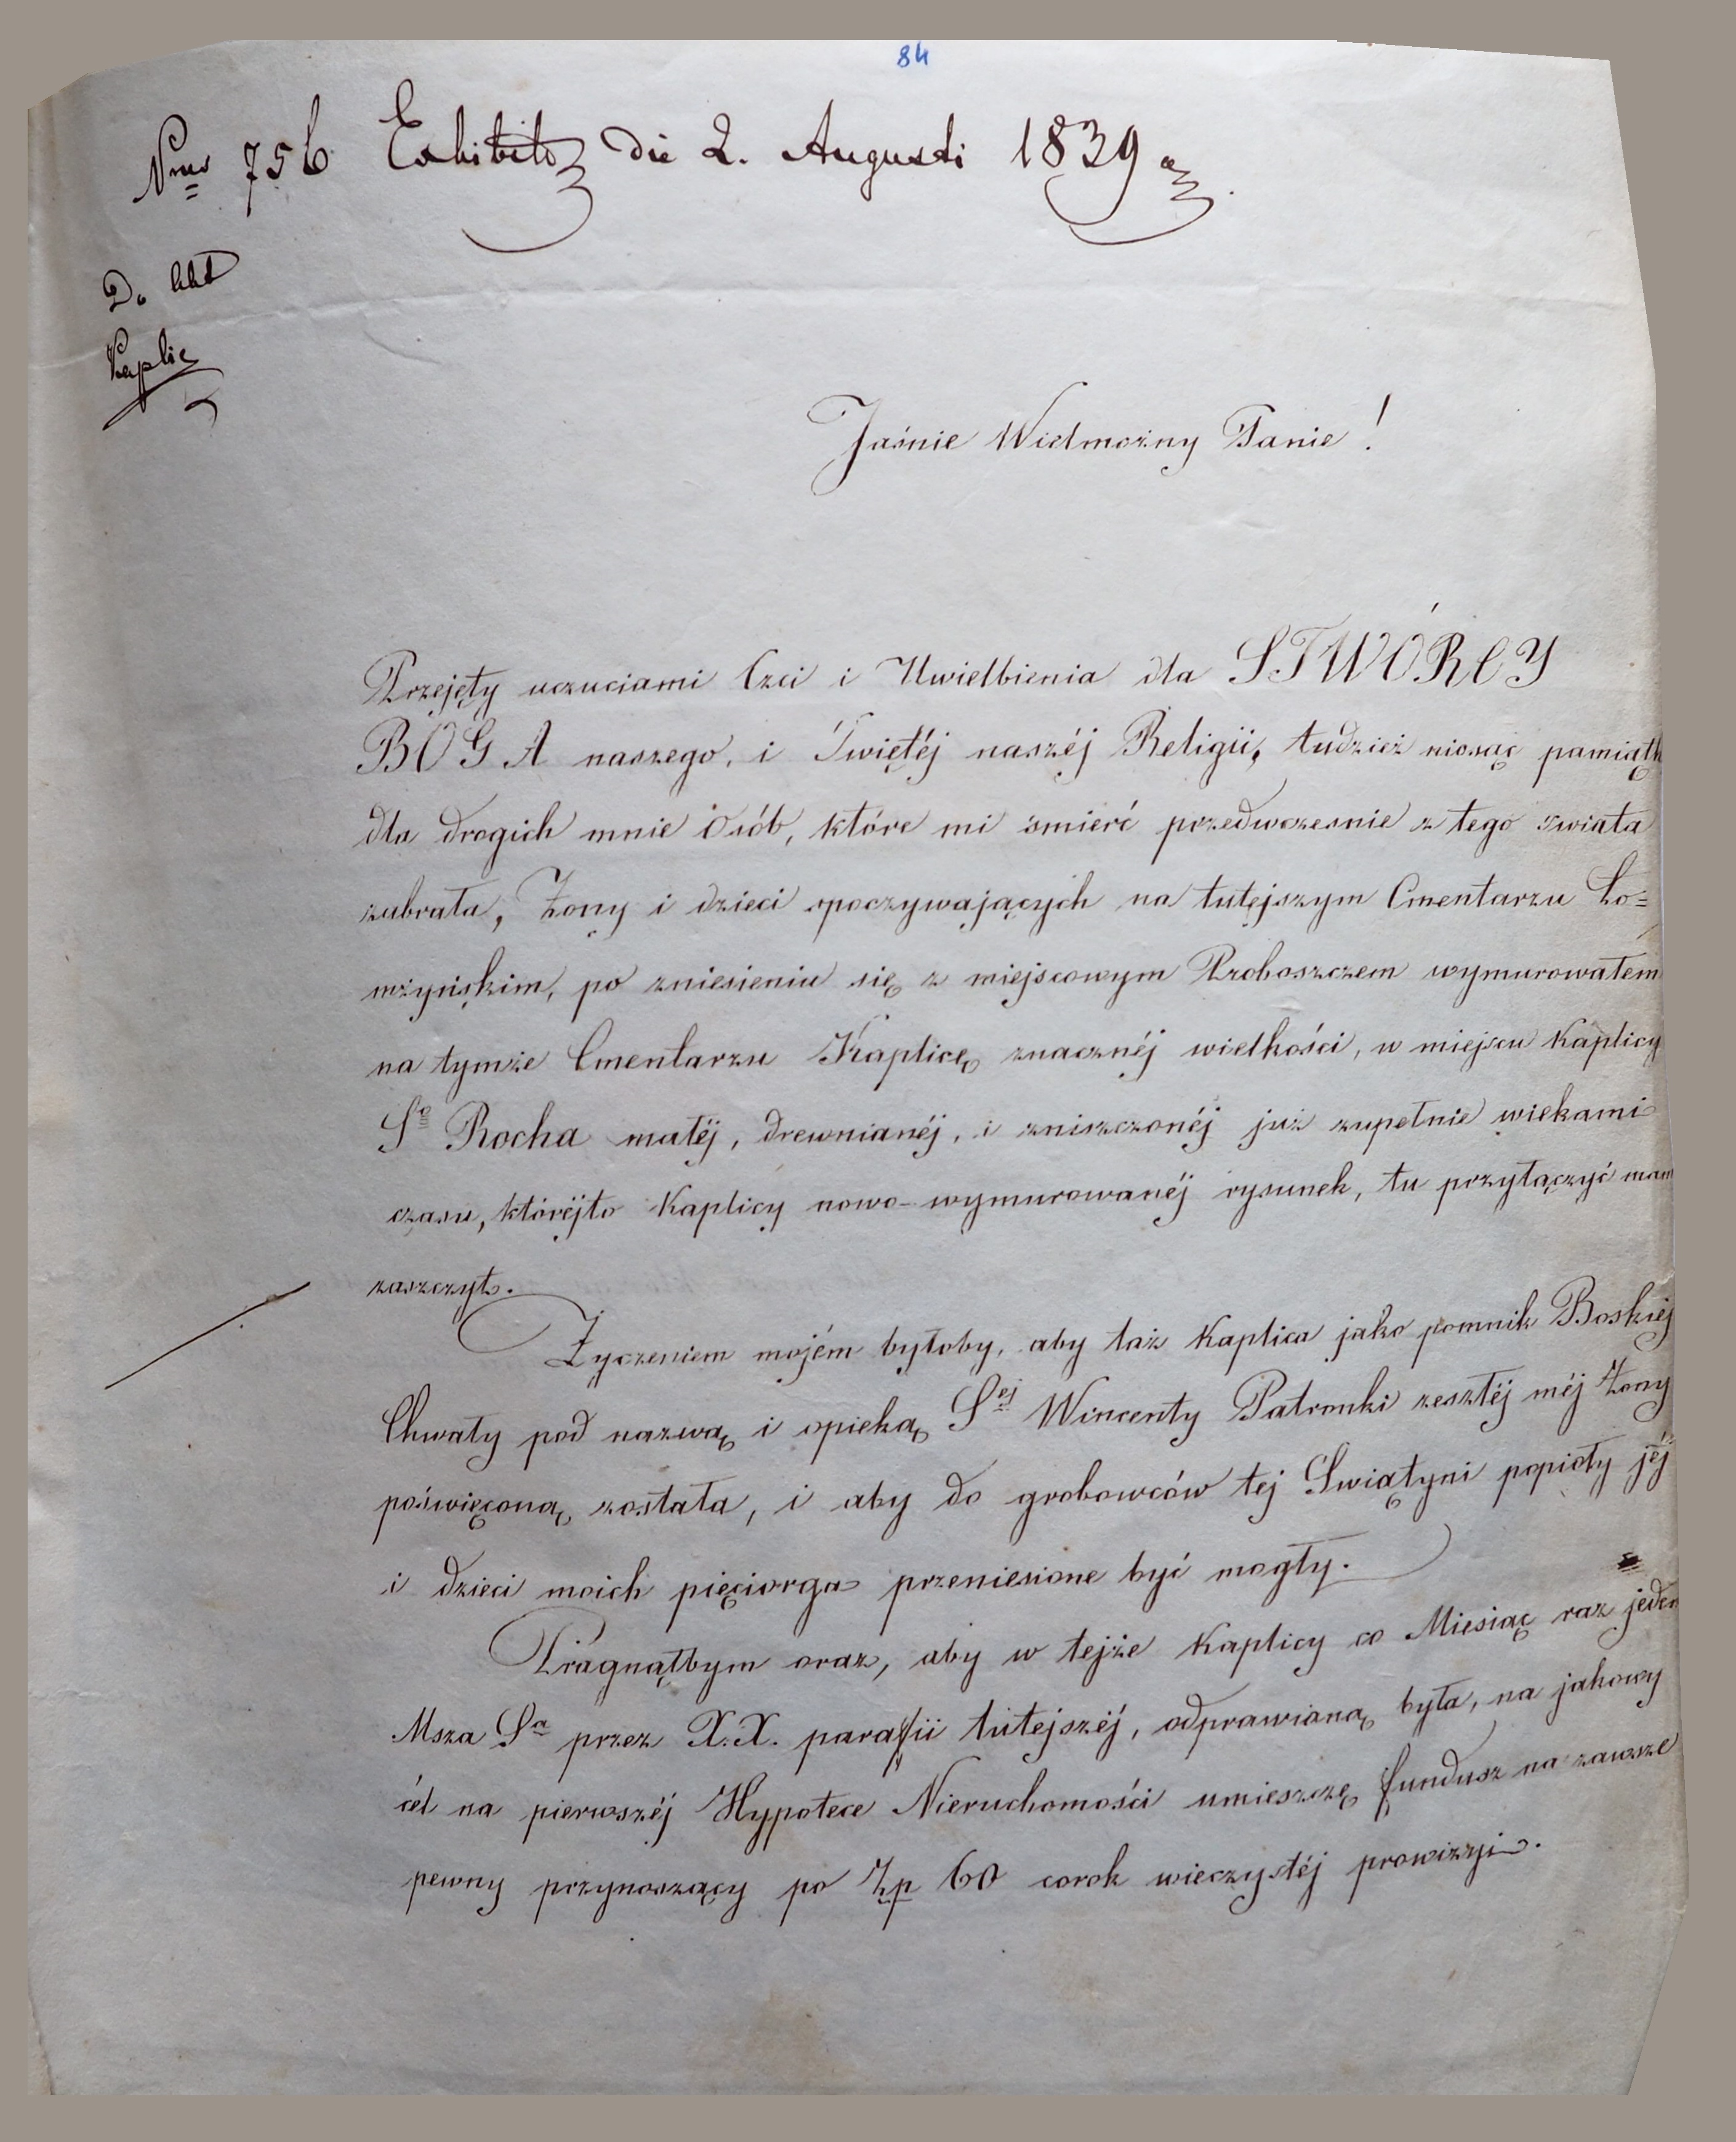 84
Nrus 756 Exhibito die 2. Augusti 1839
Do Akt
Kaplic
Jaśnie Wielmożny Panie!
Przejęty uczuciami Czci i Uwielbienia dla STWÓRCY
BOGA naszego, i Świętéj naszéj Religii, tudzież niosąc pamiątk
dla drogich mnie Osób, które mi śmierć przedwczesnie z tego swiata
zabrała, Żony i dzieci spoczywających na tutejszym Cmentarzu Ło=
mżyńskim, po zniesieniu się z miejscowym Proboszczem wymurowałem
na tymże Cmentarzu Kaplicę znacznéj wielkości, w miejscu Kaplicy
Sgo Rocha małéj, drewnianéj, i zniszczonéj już zupełnie wiekami
czasu, któréjto Kaplicy nowo-wymurowanéj rysunek, tu przyłączyć mam
zaszczyt.
Życzeniem mojém byłoby, aby taż Kaplica jako pomnik Boskiéj
Chwały pod nazwą i opieką Sej Wincenty Patronki zeszłéj méj Żony
poświęconą została, i aby do grobowców tej Swiątyni popioły jéj
i dzieci moich pięciorga przeniesione być mogły.
Pragnąłbym oraz, aby w tejże Kaplicy co Miesiąc raz jeden
Msza Sa przez X.X. parafii tutejszéj, odprawianą była, na jakowy
cél na pierwszéj Hypotece Nieruchomości umieszczę fundusz na zawsze
pewny przynoszący po Złp 60 corok wieczystéj prowizyi.